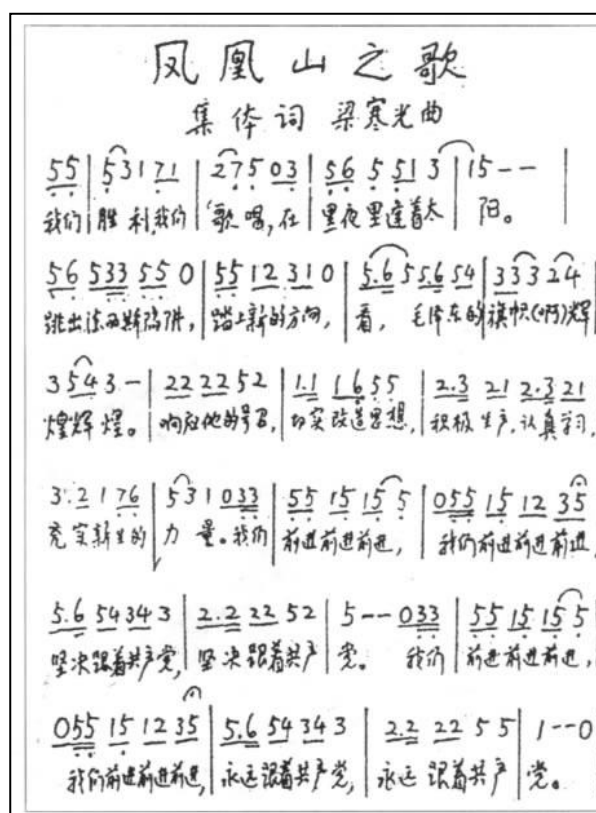 凤凰山之歌
集体词 梁寒光曲
55 | 531 71 | 275 03 | 56 5 51 3 | 15 - - |
我们 胜利,我们 歌唱,在 黑夜里逢着太 阳。
56 533 55 0 | 55 12 310 | 5.6 5 5.6 54 | 333 24
跳出法西斯 踏上新的方向, 看, 毛泽东的旗帜(啊)辉
3 54 3 - | 22 22 52 | 1.1 16 55 | 2.3 21 2.3 21
煌辉煌。 响应他的号召, 切实改造思想, 积极生产,认真学习,
3.2 1 76 | 531 033 | 55 15 15 5 | 055 15 12 35
充实新生的 力量。我们 前进前进前进, 我们前进前进前进
5.6 54 34 3 | 2.2 22 52 | 5 - - 033 | 55 15 15 5
坚决跟着共产党, 坚决跟着共产 党。 我们 前进前进前进,
055 15 12 35 | 5.6 54 34 3 | 2.2 22 5 5 | 1 - - 0
我们前进前进前进, 永远跟着共产党, 永远跟着共产 党。